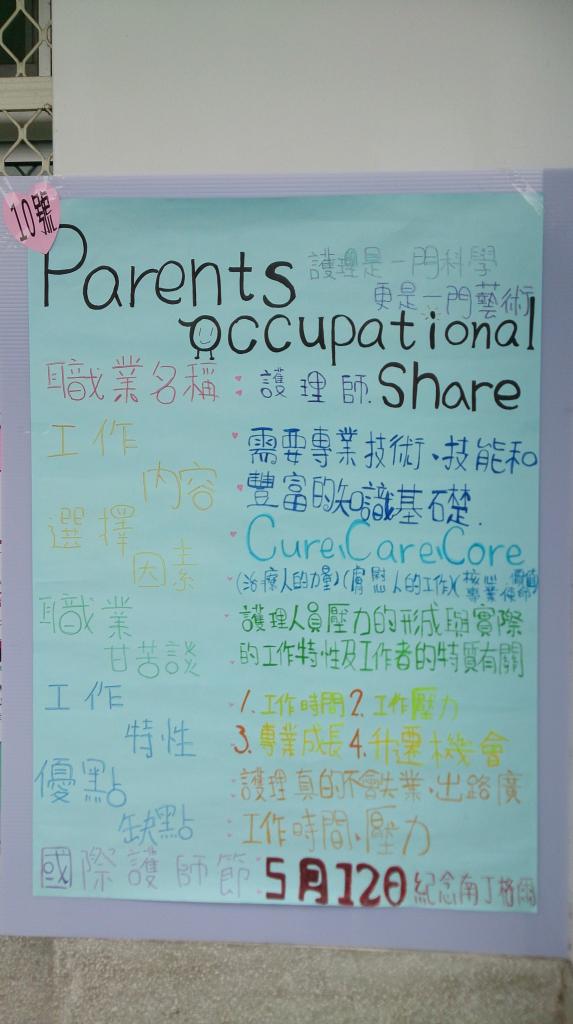 10號
Parents
護理是一門科學
更是一門藝術
occupational
Share
職業名稱：護理師.
工作內容
需要專業技術、技能和
豐富的知識基礎.
選擇因素
Cure、Care、Core
(治療人的力量)(膚慰人的工作)(核心、價值 專業使命)
職業甘苦談
護理人員壓力的形成與實際
的工作特性及工作者的特質有關
工作特性
1.工作時間2.工作壓力
3.專業成長4.升遷機會
優點
護理真的不會失業、出路廣
缺點
工作時間、壓力
國際護師節：5月12日紀念南丁格爾